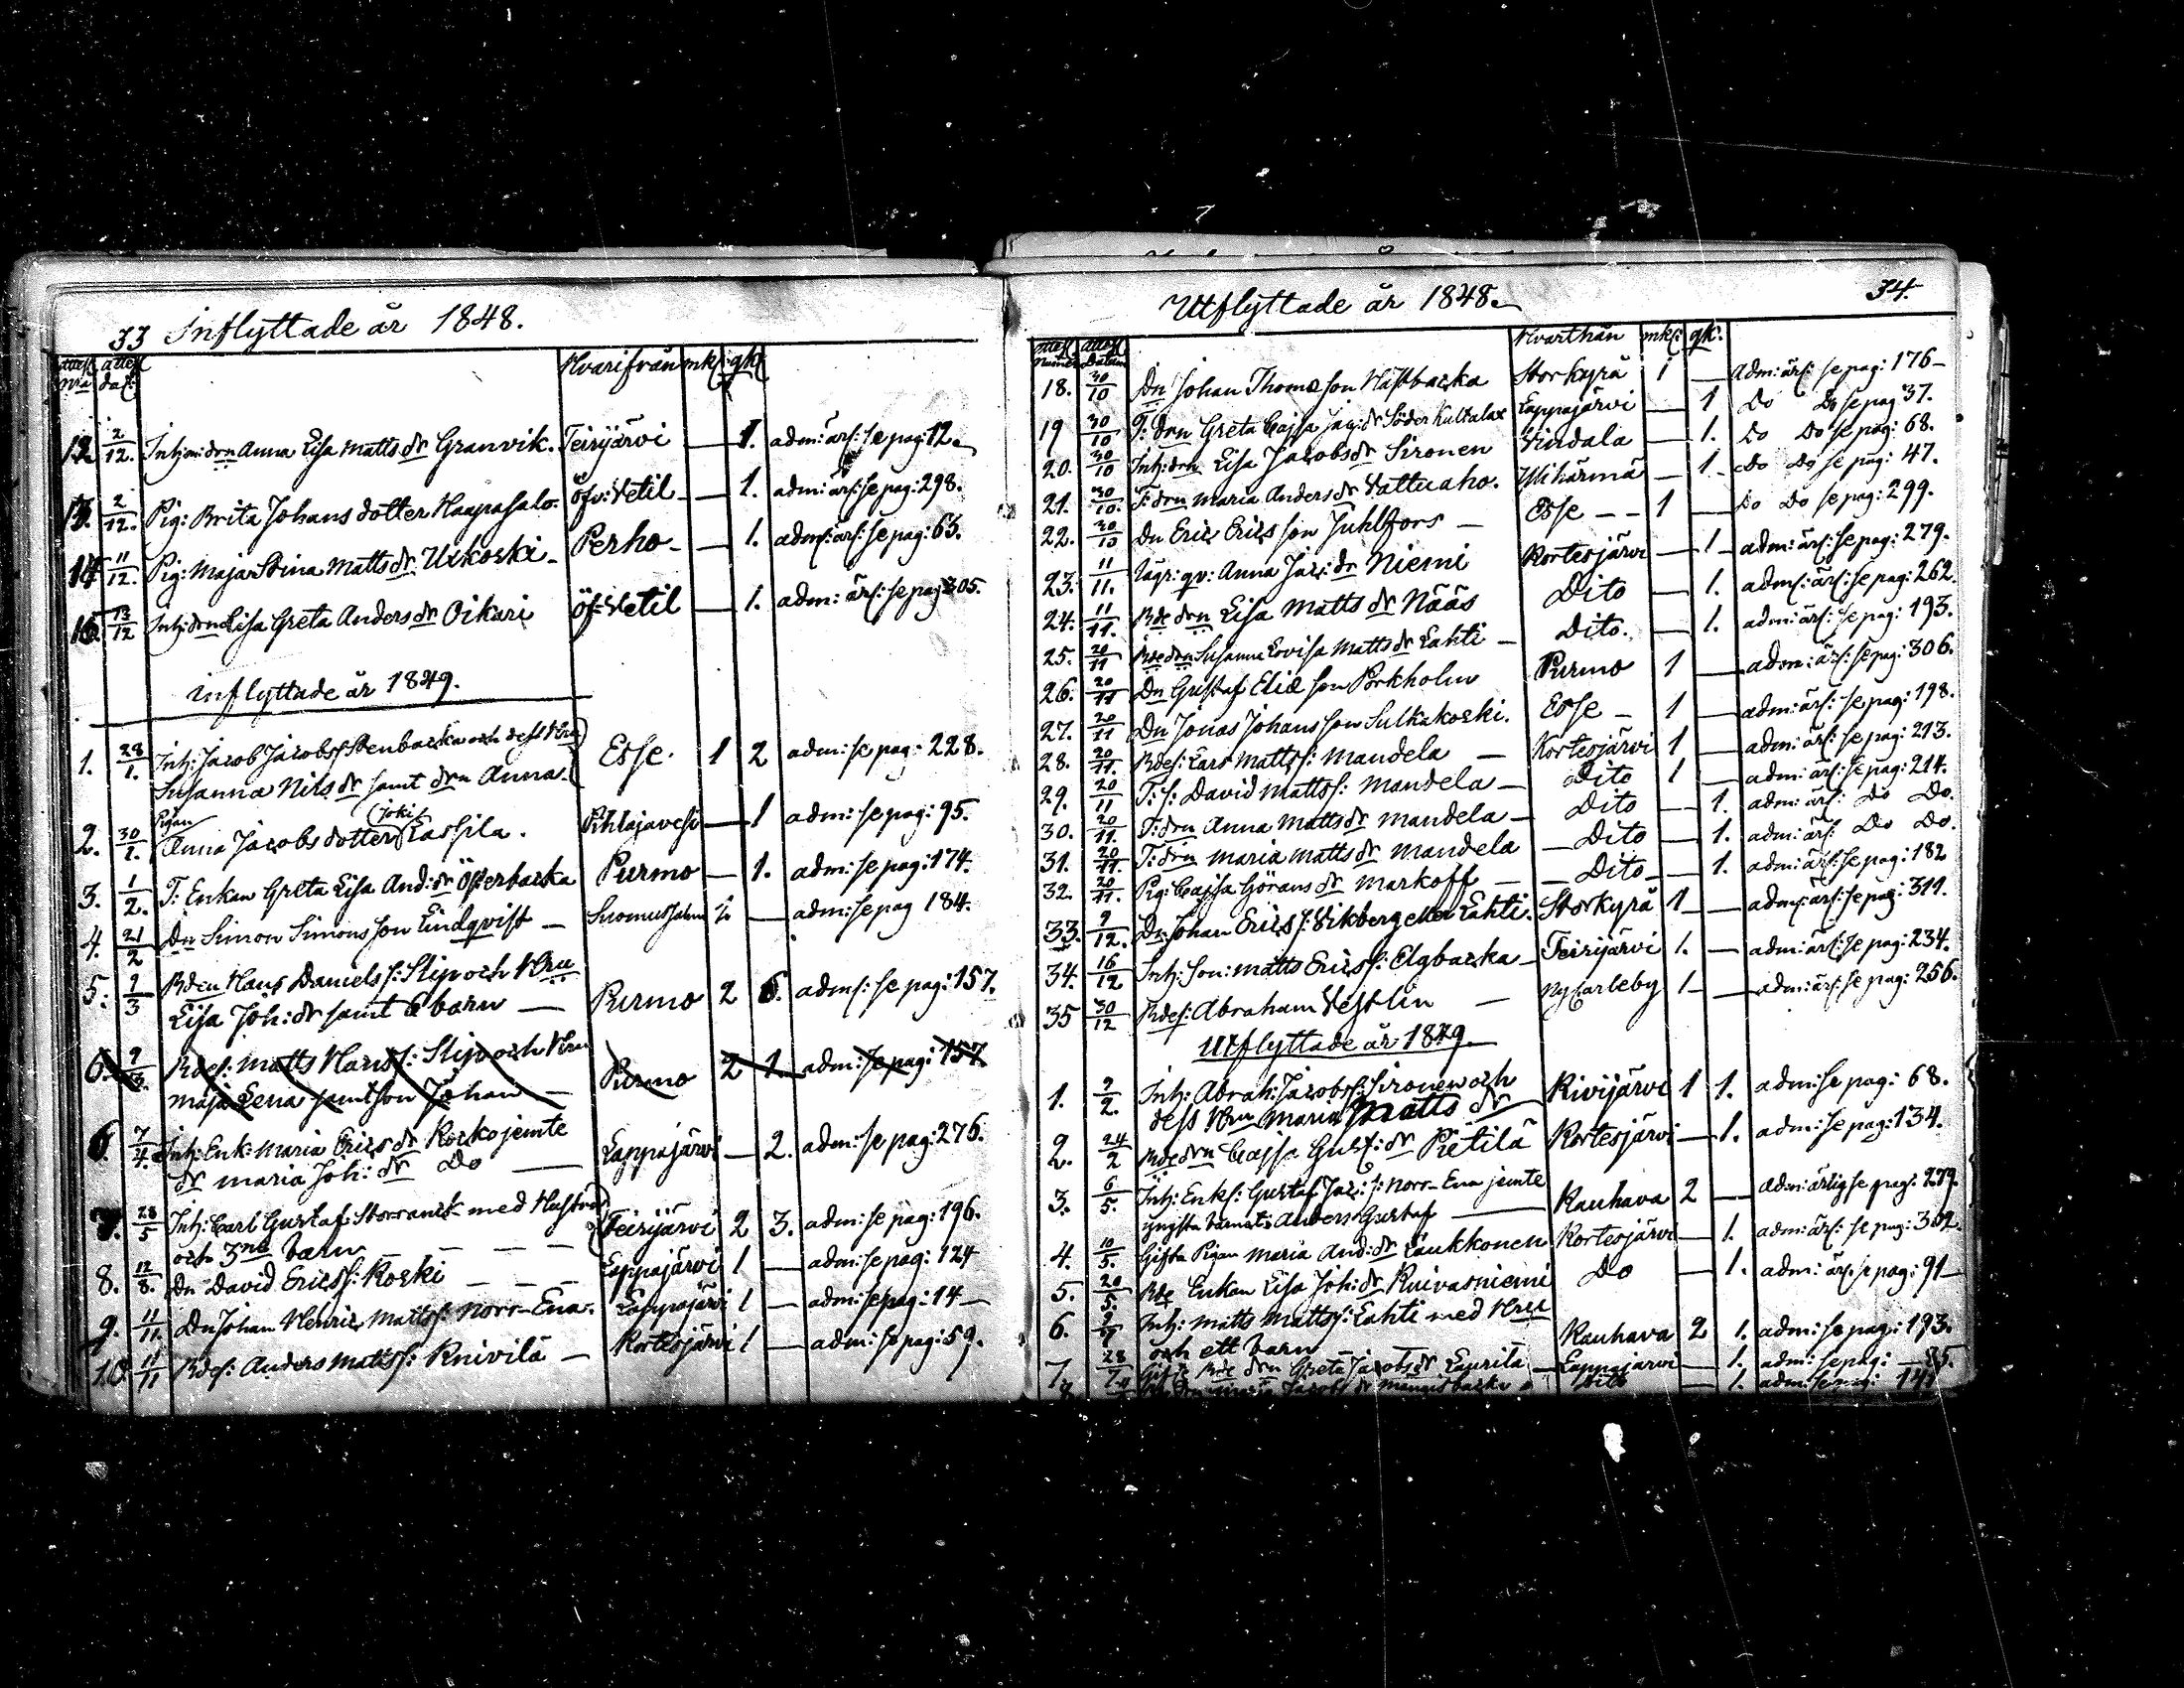 33 Inflyttade år 1848.
attest N:ro attest dat: Hvarifrån mk: qk:
12. 2/12. Inh:drn Anna Lisa Matts dr Granvik. Teirijärvi — 1. adm: ärl: se pag: 12.
13. 2/12. Pig: Brita Johans dotter Haapasalo. Öfv: Vetil — 1. adm: ärl: se pag: 298.
14 11/12. Pig: Maja Stina Matts dr Urkoski — Perho — 1. adm: ärl: se pag: 63.
15. 13/12 Inh: drn Lisa Greta Anders dr Oikari Öf: Vetil — 1. adm: ärl: se pag 305.
Inflyttade år 1849.
1. 28/1. Inh: Jacob Jacobs: Stenbacka och dess Hru
Susanna Nils dr samt drn Anna. Esse. 1 2 adm: se pag: 228.
2. 30/1. Pigan Anna Jacobs dotter (Joki) Lassila. Pihlajavesi — 1 adm: se pag: 95.
3. 1/2. T: Enkan Greta Lisa And: dr Österbacka Purmo — 1. adm: se pag: 174.
4 21/2 Dn Simon Simons son Lindqvist — 1. — adm: se pag 184.
5. 9/3 Bden Hans Daniels s: Slip och Hru
Lisa Joh: dr samt 6 barn — Purmo 2 6. adm: se pag: 157.
6. Bdes: Matts Hans s: Slip och Hru
Maja Lena samt son Johan — Purmo 2 1. adm: se pag: 157
6. 7/4. Inh: Enk: Maria Erics dr Kosko jemte
dr Maria Joh: dr Do — Lappajärvi — 2. adm: se pag: 276.
7. 28/5 Inh: Carl Gustaf Storrank med Hustru
och 3ne barn — — — Teirijärvi 2 3. adm: se pag: 196.
8. 12/8. Dn David Erics s: Koski — — — Lappajärvi 1 — adm: se pag: 124
9. 11/11. Dn Johan Henric Matts s: Norr-Ena. Lappajärvi 1 — adm: se pag: 14 —
10. 11/11 Bdes: Anders Matts s: Knivilä — Kortesjärvi 1 — adm: se pag: 59.
Utflyttade år 1848. 34.
attest Numer attest Datum Hvarthän mk: qk:
18. 30/10 Dn Johan Thomæ son Hästbacka Storkyrå 1 — Adm: ärl: se pag: 176 —
19 30/10 T: drn Greta Cajsa Jac: dr Söder Kultalax Lappajärvi — 1 Do Do se pag 37.
20. 30/10 Inh: drn Lisa Jacobs dr Sironen Vindala — 1. Do Do se pag: 68.
21. 30/10. T: drn Maria Anders dr Vattuaho. Ylihärmä — 1. Do Do se pag: 47.
22. 30/10 Dn Eric Erics son Juhlfors — Esse — — 1 — Do Do se pag: 299.
23. 11/11. qv: Anna Jac: dr Niemi Kortesjärvi — 1 — adm: ärl: se pag: 279.
24. 11/11. Bde drn Lisa Matts dr Nääs Dito — 1. adm: ärl: se pag: 262.
25. 20/11 Bde drn Susanna Lovisa Matts dr Lahti — Dito. — 1. adm: ärl: se pag: 193.
26. 20/11 Dn Gustaf Eliæ son Porkholm Purmo 1 — adm: ärl: se pag: 306.
27. 20/11 Dn Jonas Johans son Sulkakoski. Esse — 1 — adm: ärl: se pag: 198.
28. 20/11. Bdes: Lars Matts s: Mandela — Kortesjärvi 1 — adm: ärl: se pag: 213.
29. 20/11 T: s: David Matts s: Mandela — Dito 1 — adm: ärl: se pag: 214.
30. 20/11. T: drn Anna Matts dr Mandela — Dito — 1. adm: ärl: Do Do.
31. 20/11. T: drn Maria Matts dr Mandela — Dito — 1. adm: ärl: Do Do.
32. 20/11. Pig: Cajsa Görans dr Markoff — — Dito — 1. adm: ärl: se pag: 182
33. 9/12. Dn Johan Erics s: Vikberg eller Lahti. Storkyrå 1 — adm: ärl: se pag: 311.
34. 16/12 Inh: son: Matts Erics s: Elgbacka — Teirijärvi 1. — adm: ärl: se pag: 234.
35 30/12 Bdes: Abraham Vestlin — NyCarleby 1 — adm: ärl: se pag: 256.
Utflyttade år 1849.
1. 2/2. Inh: Abrah: Jacobs s: Sironen och
dess Hru Maria Matts dr Kivijärvi 1 1. adm: se pag: 68.
2. 24/2 Bde drn Cajsa Gust: dr Pietilä Kortesjärvi — 1. adm: se pag: 134.
3. 6/5. Inh: Enkl: Gustaf Jac: s: Norr-Ena jemte
yngsta barnet Anders Gustaf — Kauhava 2 — adm: ärlig se pag: 279.
4. 10/5. Gifta Pigan Maria And: dr Laukkonen Kortesjärvi — 1. adm: ärl: se pag: 302.
5. 20/5. Bde Enkan Lisa Joh: dr Kuivasniemi Do — 1. adm: ärl: se pag: 91 —
6. Inh: Matts Matts s: Lahti med Hru
och ett barn — Kauhava 2 1. adm: se pag: 193.
7. 28/7 Gifte Bde drn Greta Jacobs dr Laurila — Lappajärvi — 1. adm: se pag:
8. Maria Jacobs dr Dito — 1. adm: se pag: